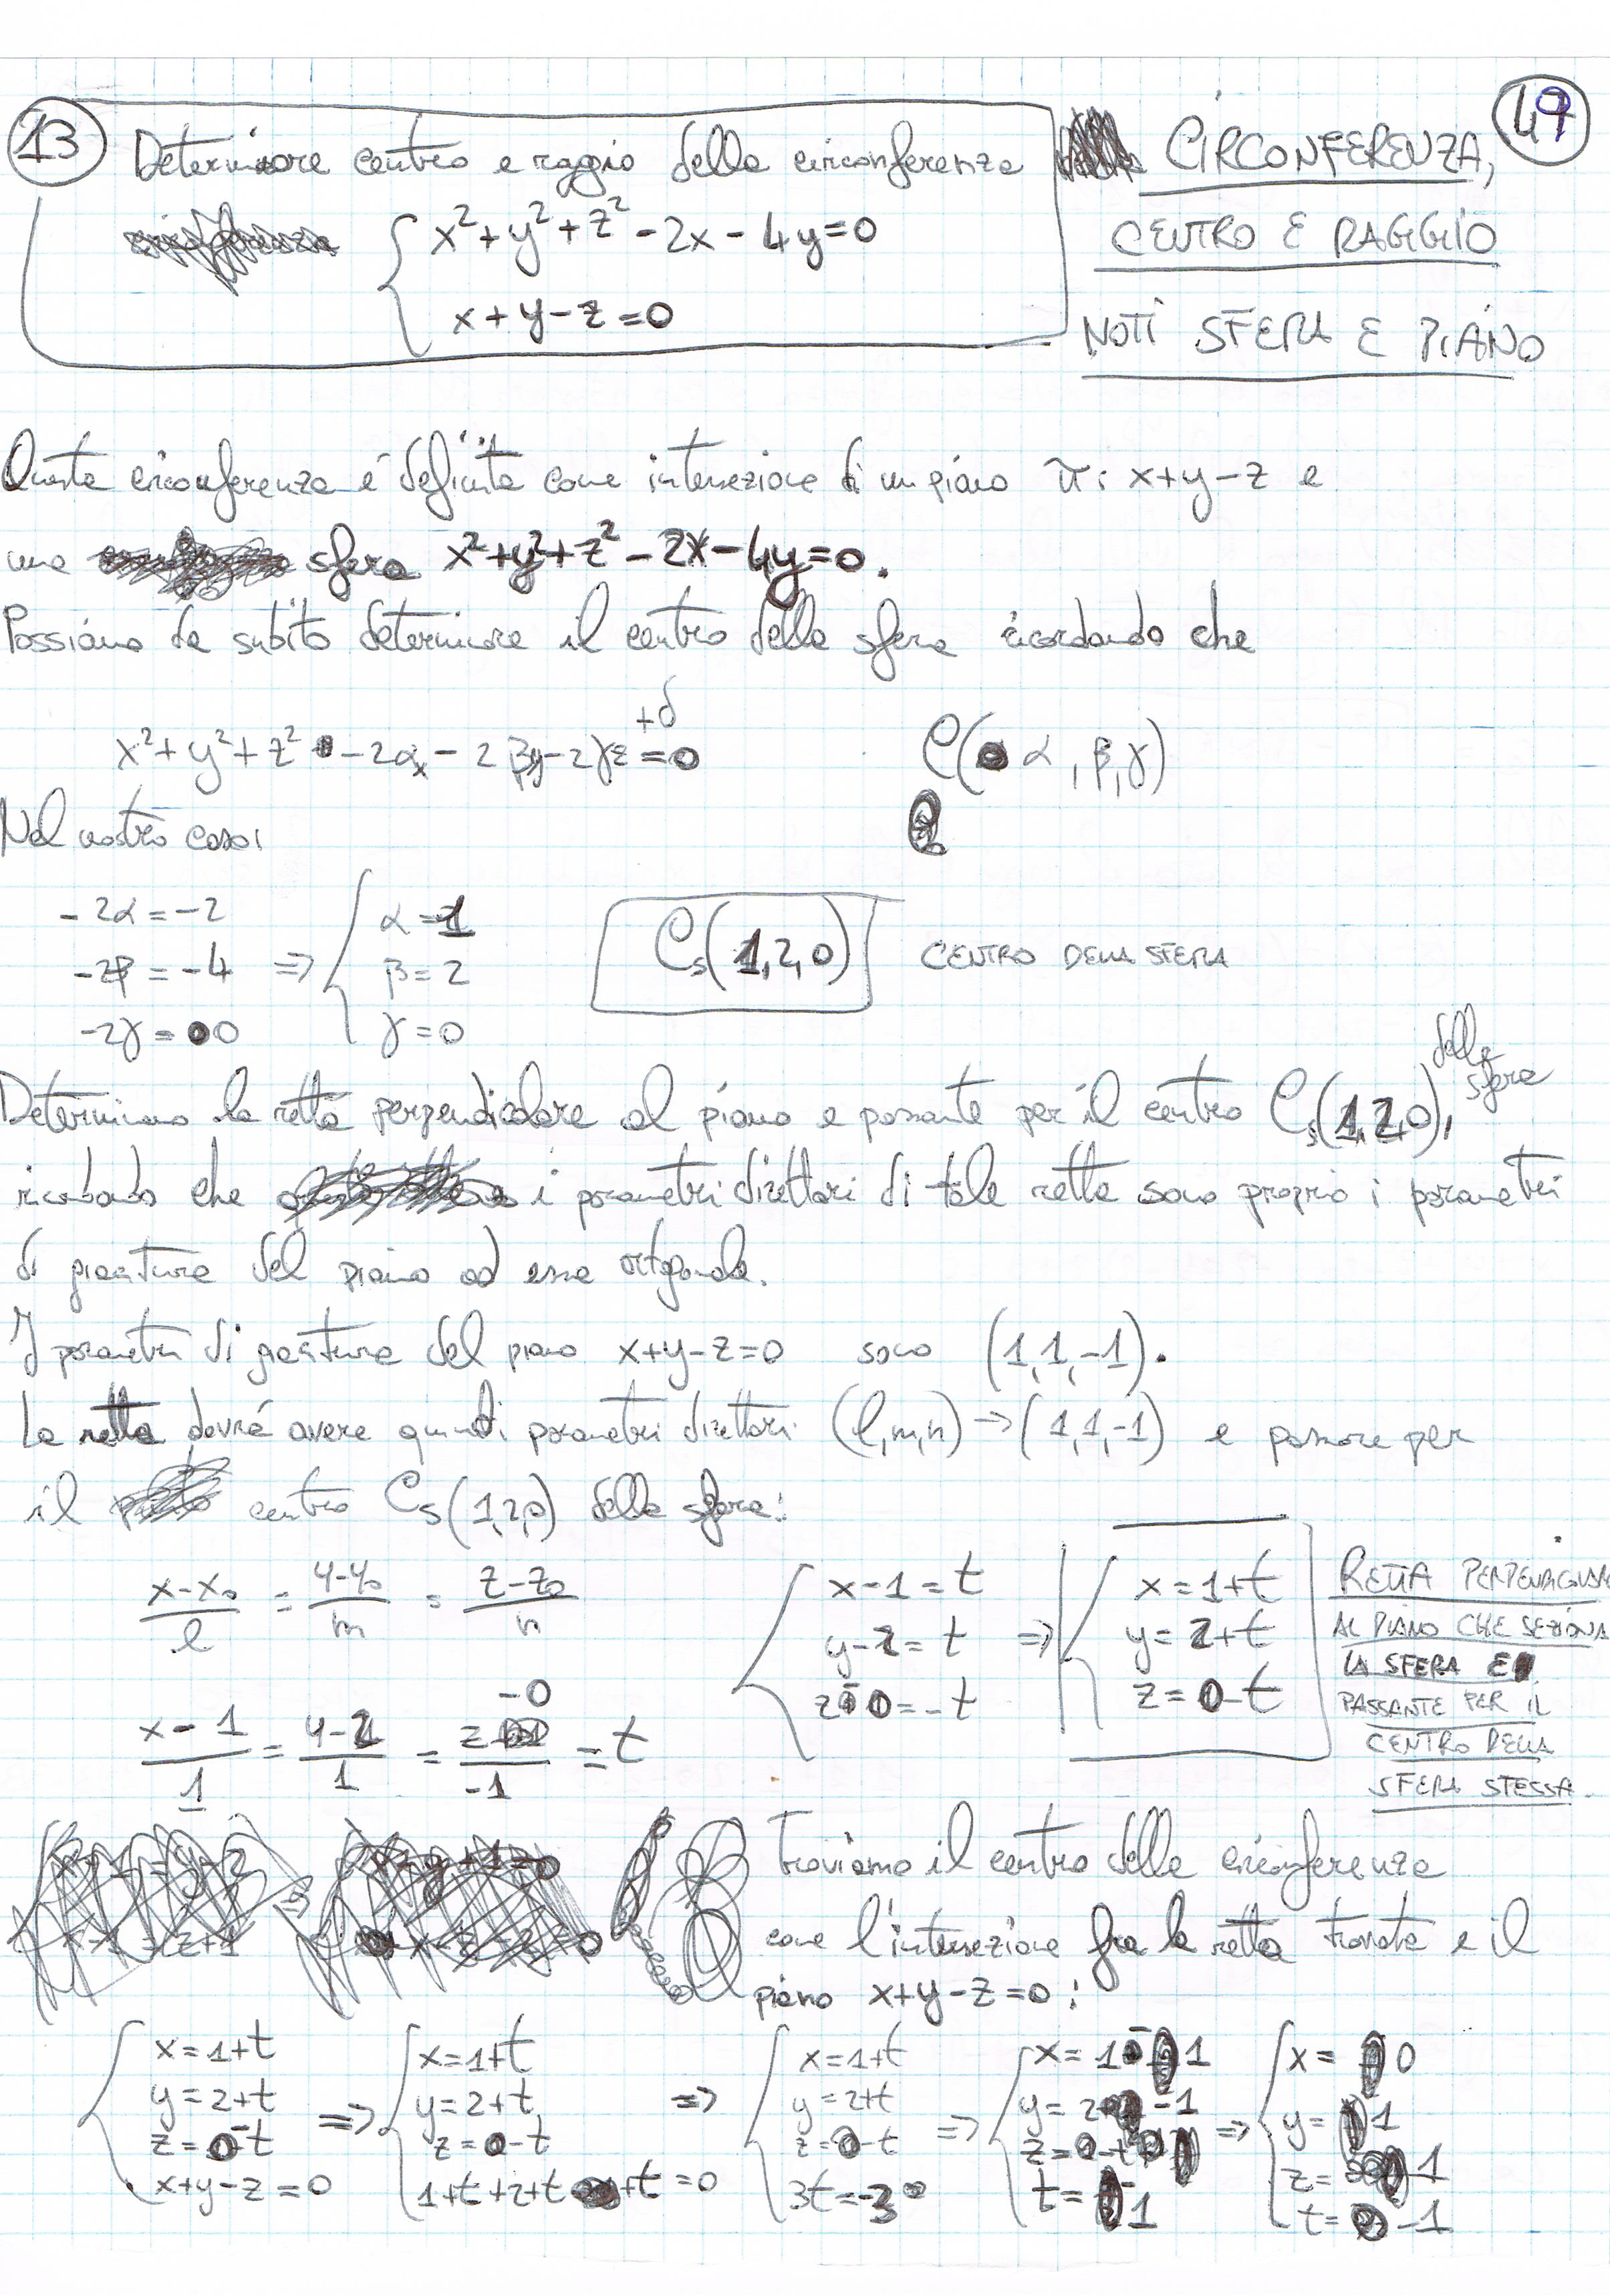 13 Determinare centro e raggio della circonferenza
{ x²+y²+z²-2x-4y=0
x+y-z=0
CIRCONFERENZA, 49
CENTRO E RAGGIO
NOTI SFERA E PIANO
Questa circonferenza é definita come intersezione di un piano π: x+y-z e
una sfera x²+y²+z²-2x-4y=0.
Possiamo da subito determinare il centro della sfera ricordando che
x²+y²+z²-2αx-2βy-2γz+δ=0 C(α,β,γ)
Nel nostro caso:
-2α=-2
-2β=-4
-2γ=0
=> { α=1
β=2
γ=0
Cs(1,2,0) CENTRO DELLA SFERA
Determiniamo la retta perpendicolare al piano e passante per il centro Cs(1,2,0), della sfera
ricordando che i parametri direttori di tale retta sono proprio i parametri
di giacitura del piano ad essa ortogonale.
I parametri di giacitura del piano x+y-z=0 sono (1,1,-1).
La retta dovrá avere quindi parametri direttori (l,m,n)->(1,1,-1) e passare per
il centro Cs(1,2,0) della sfera:
(x-x₀)/l = (y-y₀)/m = (z-z₀)/n
(x-1)/1 = (y-2)/1 = (z-0)/-1 = t
{ x-1=t
y-2=t
z-0=-t
=> { x=1+t
y=2+t
z=0-t
RETTA PERPENDICOLARE
AL PIANO CHE SEZIONA
LA SFERA E
PASSANTE PER IL
CENTRO DELLA
SFERA STESSA.
Troviamo il centro della circonferenza
come l'intersezione fra la retta trovata e il
piano x+y-z=0:
{ x=1+t
y=2+t
z=0-t
x+y-z=0
=> { x=1+t
y=2+t
z=0-t
1+t+2+t+t=0
=> { x=1+t
y=2+t
z=0-t
3t=-3
=> { x=1-1
y=2-1
z=0-t
t=-1
=> { x=0
y=1
z=1
t=-1